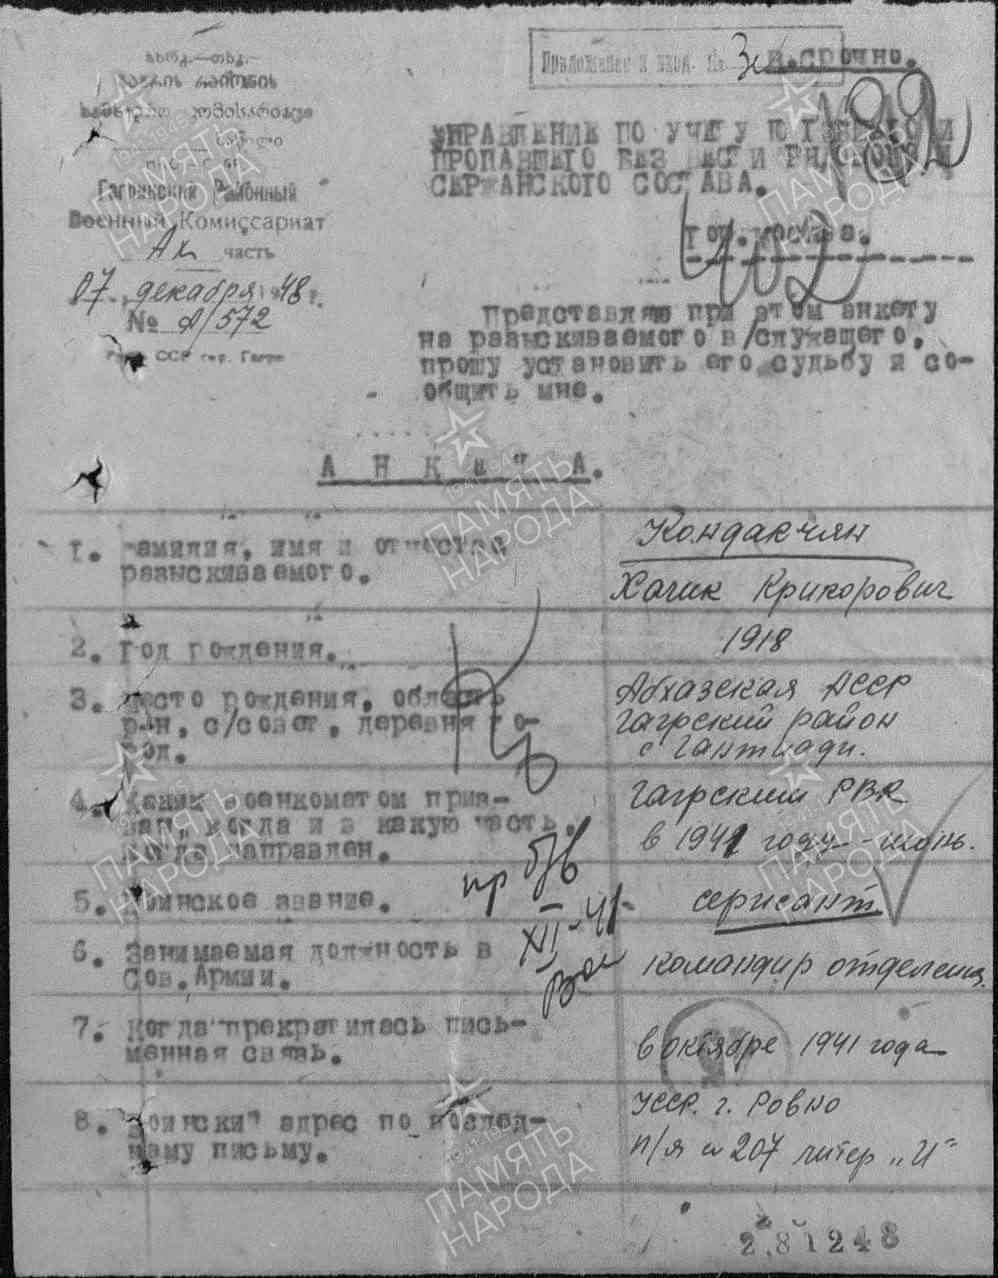 Приложение к вход. №
3
н.срочно.
УПРАВЛЕНИЕ ПО УЧЕТУ ПОГИБШЕГО И
ПРОПАВШЕГО БЕЗ ВЕСТИ РЯДОВОГО И
СЕРЖАНСКОГО СОСТАВА.
гор.Москва.
402
Гагринский Районный
Военный Комиссариат
часть
07 декабря 1948 г.
№ А/572
ССР гор. Гагры
Представляю при этом анкету
на разыскиваемого в/служащего,
прошу установить его судьбу и со-
общить мне.
А Н К Е Т А.
1. Фамилия, имя и отчество
разыскиваемого.
Кондакчян
Хачик Крикорович
2. Год рождения.
1918
3. Место рождения, область
р-н, с/совет, деревня го-
род.
Абхазская АССР
Гагрский район
с Гантиади.
4. Каким военкоматом приз-
ван, когда и в какую часть
когда направлен.
Гагрский РВК
в 1941 году - июнь.
пр б/в
XII-41
5. Воинское звание.
сержант
6. Занимаемая должность в
Сов.Армии.
командир отделения
7. Когда прекратилась пись-
менная связь.
в октябре 1941 года
8. Воинский адрес по послед-
нему письму.
УССР. г. Ровно
п/я № 207 литер „И"
281248
ПАМЯТЬ
НАРОДА